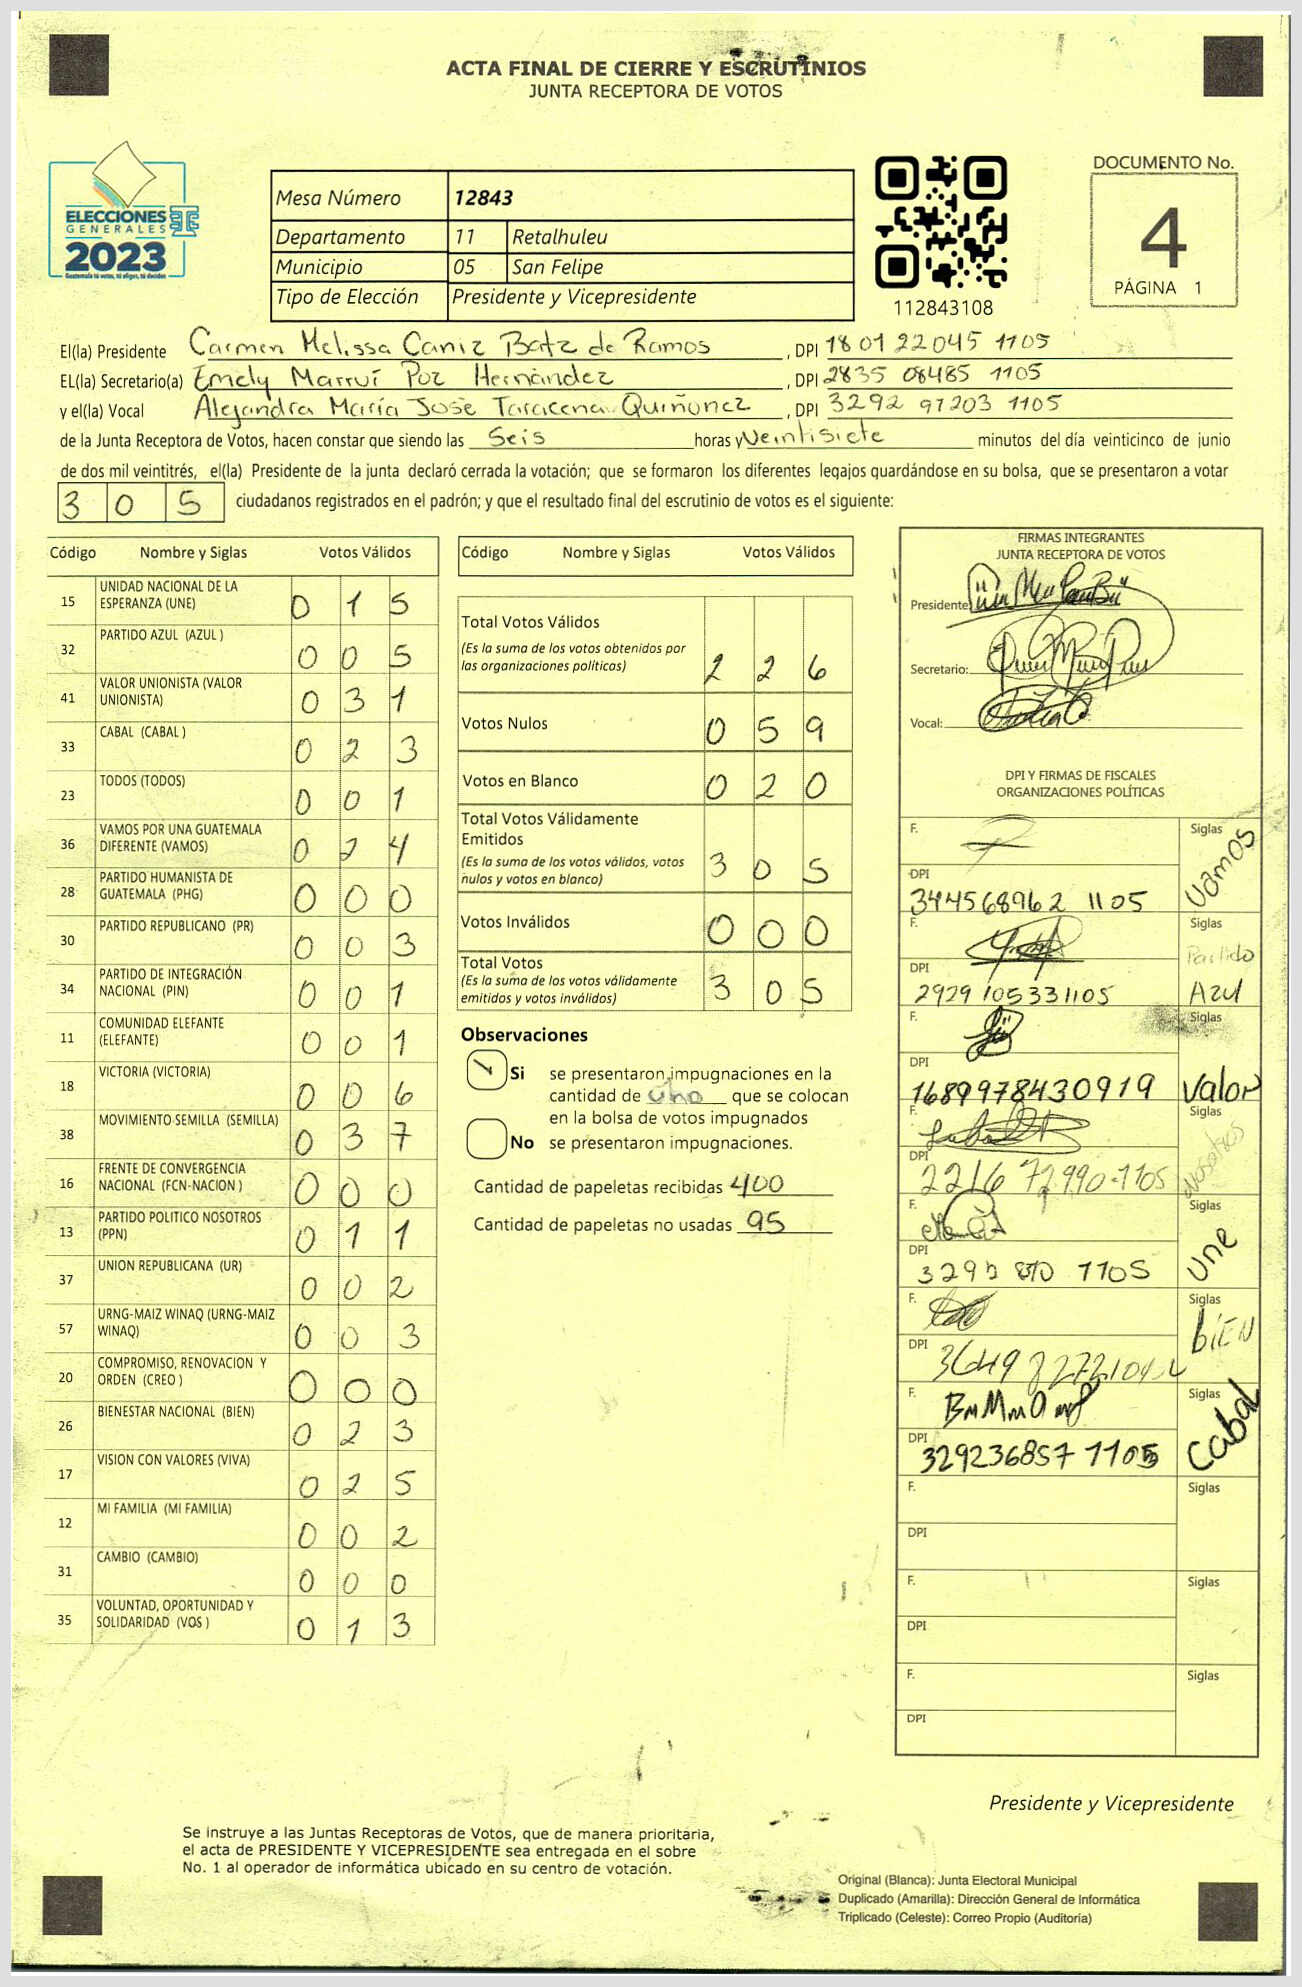 ACTA FINAL DE CIERRE Y ESCRUTINIOS
JUNTA RECEPTORA DE VOTOS
ELECCIONES
GENERALES
2023
Mesa Número 12843
Departamento 11 Retalhuleu
Municipio 05 San Felipe
Tipo de Elección Presidente y Vicepresidente
112843108
DOCUMENTO No.
4
PÁGINA 1
El(la) Presidente Carmen Melissa Caniz Batz de Ramos, DPI 1801 22045 1105
EL(la) Secretario(a) Emely Marruí Poz Hernández, DPI 2835 08485 1105
y el(la) Vocal Alejandra María José Taracena Quiñonez, DPI 3292 97203 1105
de la Junta Receptora de Votos, hacen constar que siendo las Seis horas y Veintisiete minutos del día veinticinco de junio
de dos mil veintitrés, el(la) Presidente de la junta declaró cerrada la votación; que se formaron los diferentes legajos guardándose en su bolsa, que se presentaron a votar
3 0 5 ciudadanos registrados en el padrón; y que el resultado final del escrutinio de votos es el siguiente:
Código Nombre y Siglas Votos Válidos
15 UNIDAD NACIONAL DE LA ESPERANZA (UNE) 0 1 5
32 PARTIDO AZUL (AZUL ) 0 0 5
41 VALOR UNIONISTA (VALOR UNIONISTA) 0 3 1
33 CABAL (CABAL ) 0 2 3
23 TODOS (TODOS) 0 0 1
36 VAMOS POR UNA GUATEMALA DIFERENTE (VAMOS) 0 2 4
28 PARTIDO HUMANISTA DE GUATEMALA (PHG) 0 0 0
30 PARTIDO REPUBLICANO (PR) 0 0 3
34 PARTIDO DE INTEGRACIÓN NACIONAL (PIN) 0 0 1
11 COMUNIDAD ELEFANTE (ELEFANTE) 0 0 1
18 VICTORIA (VICTORIA) 0 0 6
38 MOVIMIENTO SEMILLA (SEMILLA) 0 3 7
16 FRENTE DE CONVERGENCIA NACIONAL (FCN-NACION ) 0 0 0
13 PARTIDO POLITICO NOSOTROS (PPN) 0 1 1
37 UNION REPUBLICANA (UR) 0 0 2
57 URNG-MAIZ WINAQ (URNG-MAIZ WINAQ) 0 0 3
20 COMPROMISO, RENOVACION Y ORDEN (CREO ) 0 0 0
26 BIENESTAR NACIONAL (BIEN) 0 2 3
17 VISION CON VALORES (VIVA) 0 2 5
12 MI FAMILIA (MI FAMILIA) 0 0 2
31 CAMBIO (CAMBIO) 0 0 0
35 VOLUNTAD, OPORTUNIDAD Y SOLIDARIDAD (VOS ) 0 1 3
Código Nombre y Siglas Votos Válidos
Total Votos Válidos 2 2 6
(Es la suma de los votos obtenidos por
las organizaciones políticas)
Votos Nulos 0 5 9
Votos en Blanco 0 2 0
Total Votos Válidamente
Emitidos 3 0 5
(Es la suma de los votos válidos, votos
nulos y votos en blanco)
Votos Inválidos 0 0 0
Total Votos 3 0 5
(Es la suma de los votos válidamente
emitidos y votos inválidos)
Observaciones
Si se presentaron impugnaciones en la
cantidad de uno que se colocan
en la bolsa de votos impugnados
No se presentaron impugnaciones.
Cantidad de papeletas recibidas 400
Cantidad de papeletas no usadas 95
FIRMAS INTEGRANTES
JUNTA RECEPTORA DE VOTOS
Presidente:
Secretario:
Vocal:
DPI Y FIRMAS DE FISCALES
ORGANIZACIONES POLÍTICAS
F. Siglas Vamos
DPI 344568962 1105
F. Siglas Partido Azul
DPI 2929 105331105
F. Siglas Valor
DPI 1689978430919
F. Siglas Nosotros
DPI 2216 72990-1105
F. Siglas Une
DPI 1105
F. Siglas bIEN
DPI
F. Siglas Cabal
DPI 329236857 1105
F. Siglas
DPI
F. Siglas
DPI
F. Siglas
DPI
Presidente y Vicepresidente
Se instruye a las Juntas Receptoras de Votos, que de manera prioritaria,
el acta de PRESIDENTE Y VICEPRESIDENTE sea entregada en el sobre
No. 1 al operador de informática ubicado en su centro de votación.
Original (Blanca): Junta Electoral Municipal
Duplicado (Amarilla): Dirección General de Informática
Triplicado (Celeste): Correo Propio (Auditoría)